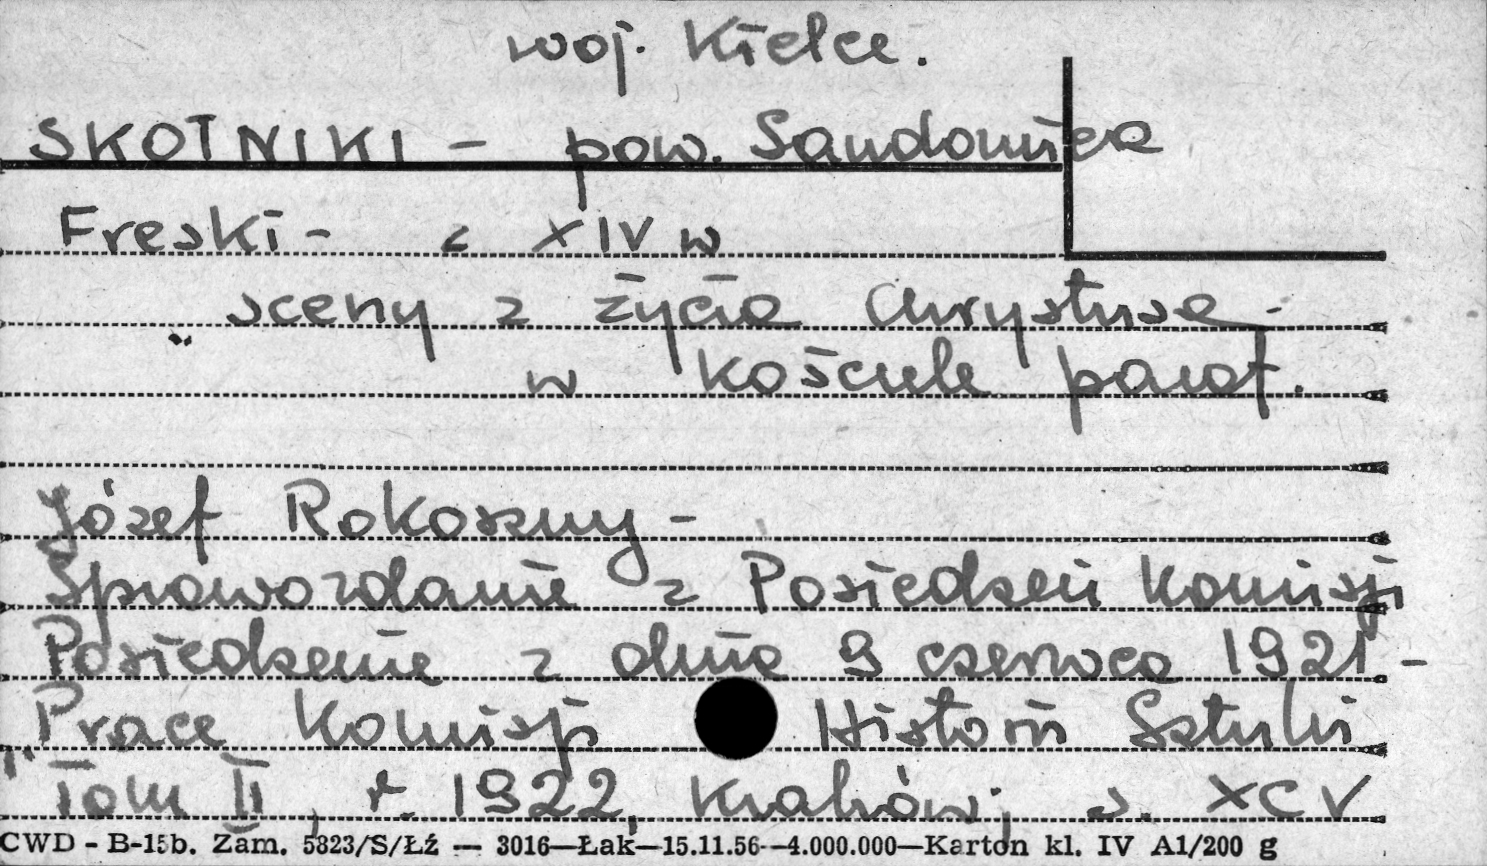 woj. Kielce.
SKOTNIKI - pow. Sandomierz
Freski - z XIV w
sceny z życia Chrystusa -
w kościele paraf.
Józef Rokoszny -
Sprawozdanie z Posiedzeń Komisji
Posiedzenie z dnia 9 czerwca 1921 -
"Prace Komisji Historii Sztuki
Tom II, r. 1922, Kraków, s. XCV
CWD - B-15b. Zam. 5823/S/Łź — 3016—Łak—15.11.56—4.000.000—Karton kl. IV A1/200 g